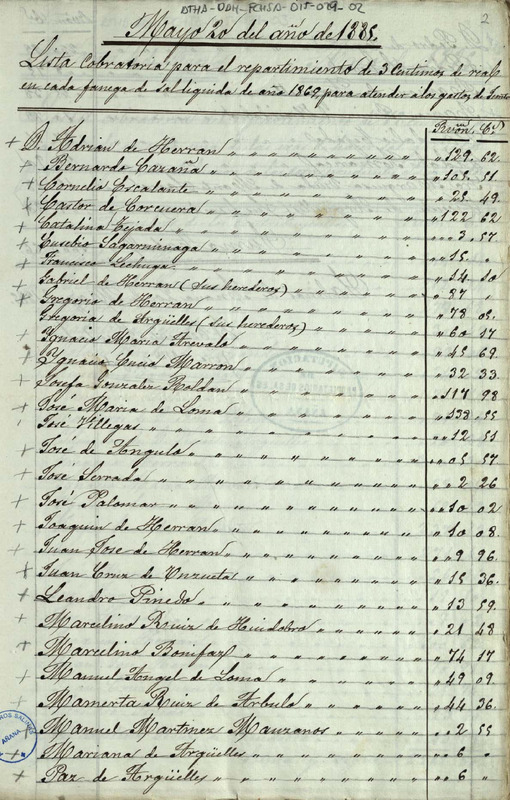 DTHA-DDH-FCHSA-015-029-02
2
Mayo 20 del año de 1885.
Lista Cobratoria para el repartimiento de 3 Centimos de real
en cada fanega de Sal liquida de año 1869 para atender á los gastos de
Rvóñ Cs
+ D. Adrian de Herran " 129. 62.
+ Bernardo Cazaña " 105. 51
+ Cornelio Escalante " 25. 49.
+ Castor de Corcuera " 122 62
+ Catalina Tejada " 3. 57.
+ Eusebio Sagarminaga " 15 "
+ Francisco Lechuga " 14 10
+ Gabriel de Herran (sus herederos) " 27 "
+ Gregoria de Herran " 78 05.
+ Gregoria de Argüelles (sus herederos) " 60 17
+ Ignacio Maria Arevalo " 45 69.
+ Ignacio Lucio Marron " 32 33.
+ Josefa Gonzalez Roldan " 117 98
+ José Maria de Loma " 338. 55
+ José Villegas " 12 51
+ José de Angulo " 05 57
+ José Serrada " 2 26
+ José Palomar " 10 02
+ Joaquin de Herran " 10 08.
+ Juan José de Herran " 9 96.
+ Juan Cruz de Unzueta " 15 36.
+ Leandro Pinedo " 13 59.
+ Marcelino Ruiz de Huidobro " 21 48
+ Marcelino Bonifaz " 74 17
+ Manuel Angel de Loma " 49 09.
+ Mamerta Ruiz de Arbulo " 44 36.
+ Manuel Martinez Manzanos " 2 55
+ Mariana de Argüelles " 6 "
+ Paz de Argüelles " 6 "